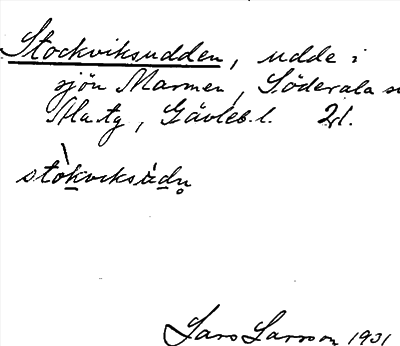 Stockviksudden, udde i
sjön Marmen, Söderala s
Ala tg, Gävleb. l. 2d.
stòkviksùdn̥
Lars Larsson 1931